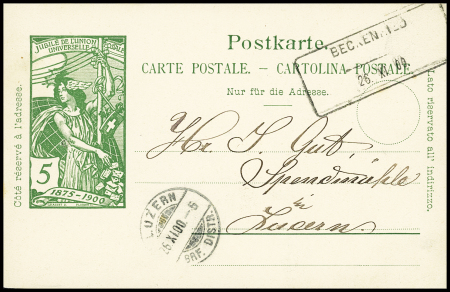 JUBILÉ DE L'UNION
UNIVERSELLE
5
1875-1900
Postkarte.
CARTE POSTALE. – CARTOLINA POSTALE.
Nur für die Adresse.
Côté réservé à l'adresse.
Lato riservato all' indirizzo.
BECKENRIED
26. XI. 00
Hr. J. Gut,
Spendmühle
in
Luzern.
LUZERN
26 XI 00 – 5
BRF. DISTR.